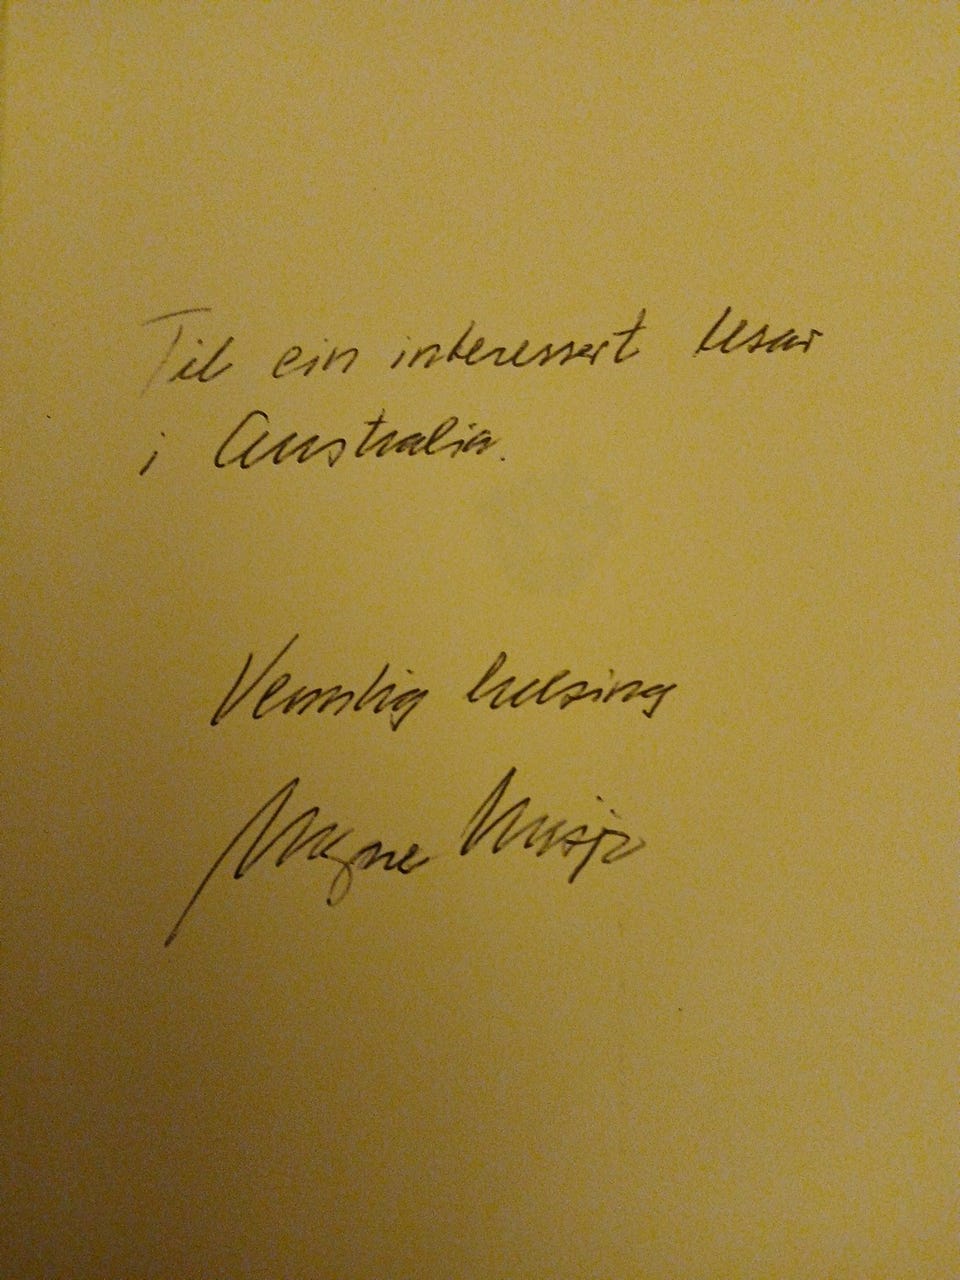 Til ein interessert lesar
i Australia.
Vennlig helsing
Magne Misje